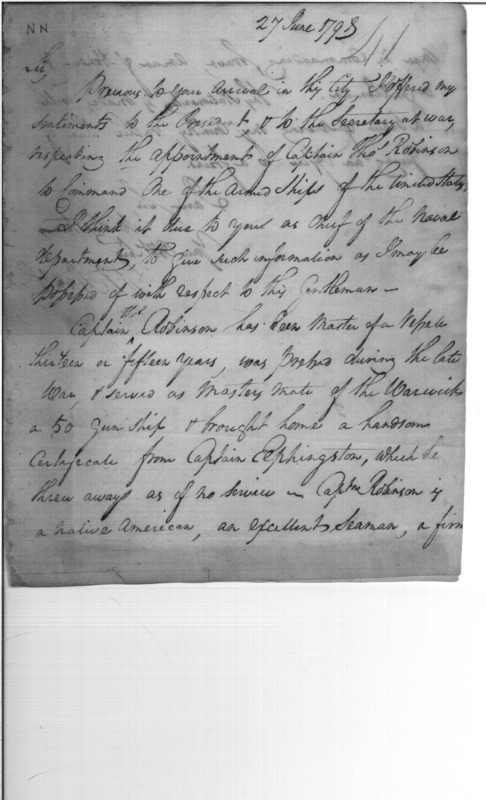 NN
27 June 1798
Sir,
Previous to your arrival in this City I offered my
sentiments to the President & to the Secretary at war,
respecting the appointment of Captain Thos Robinson
to Command One of the Armed Ships of the United States
I think it due to you as chief of the Naval
department, to give such information as I may be
possessed of with respect to this Gentleman —
Captain Thos Robinson has been Master of a Vessel
thirteen or fifteen years, was pressed during the late
War, & served as Masters Mate of the Warwick
a 50 Gun Ship & brought home a handsome
Certificate from Captain Elphingston, which he
threw away as of no service — Captn Robinson is
a native American, an excellent Seaman, a firm